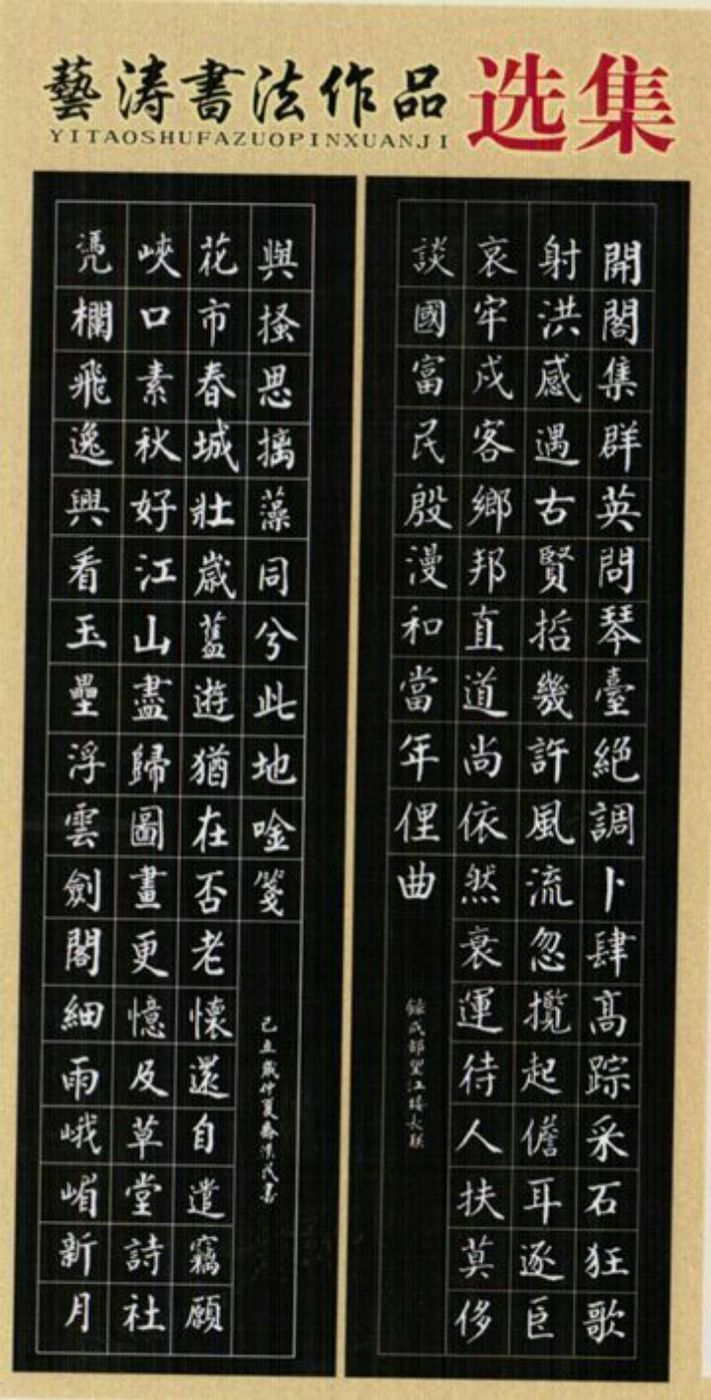 藝涛書法作品选集
YITAOSHUFAZUOPINXUANJI
開閣集群英問琴臺絕調卜肆高踪采石狂歌
射洪感遇古賢哲幾許風流忽攬起儋耳逐臣
哀牢戍客鄉邦直道尚依然衰運待人扶莫侈
談國富民殷漫和當年俚曲
錄成都望江樓長聯
憑欄飛逸興看玉壘浮雲劍閣細雨峨嵋新月
峽口素秋好江山盡歸圖畫更憶及草堂詩社
花市春城壯歲舊遊猶在否老懷還自遣竊願
與搔思摛藻同兮此地唫箋
己丑歲仲夏